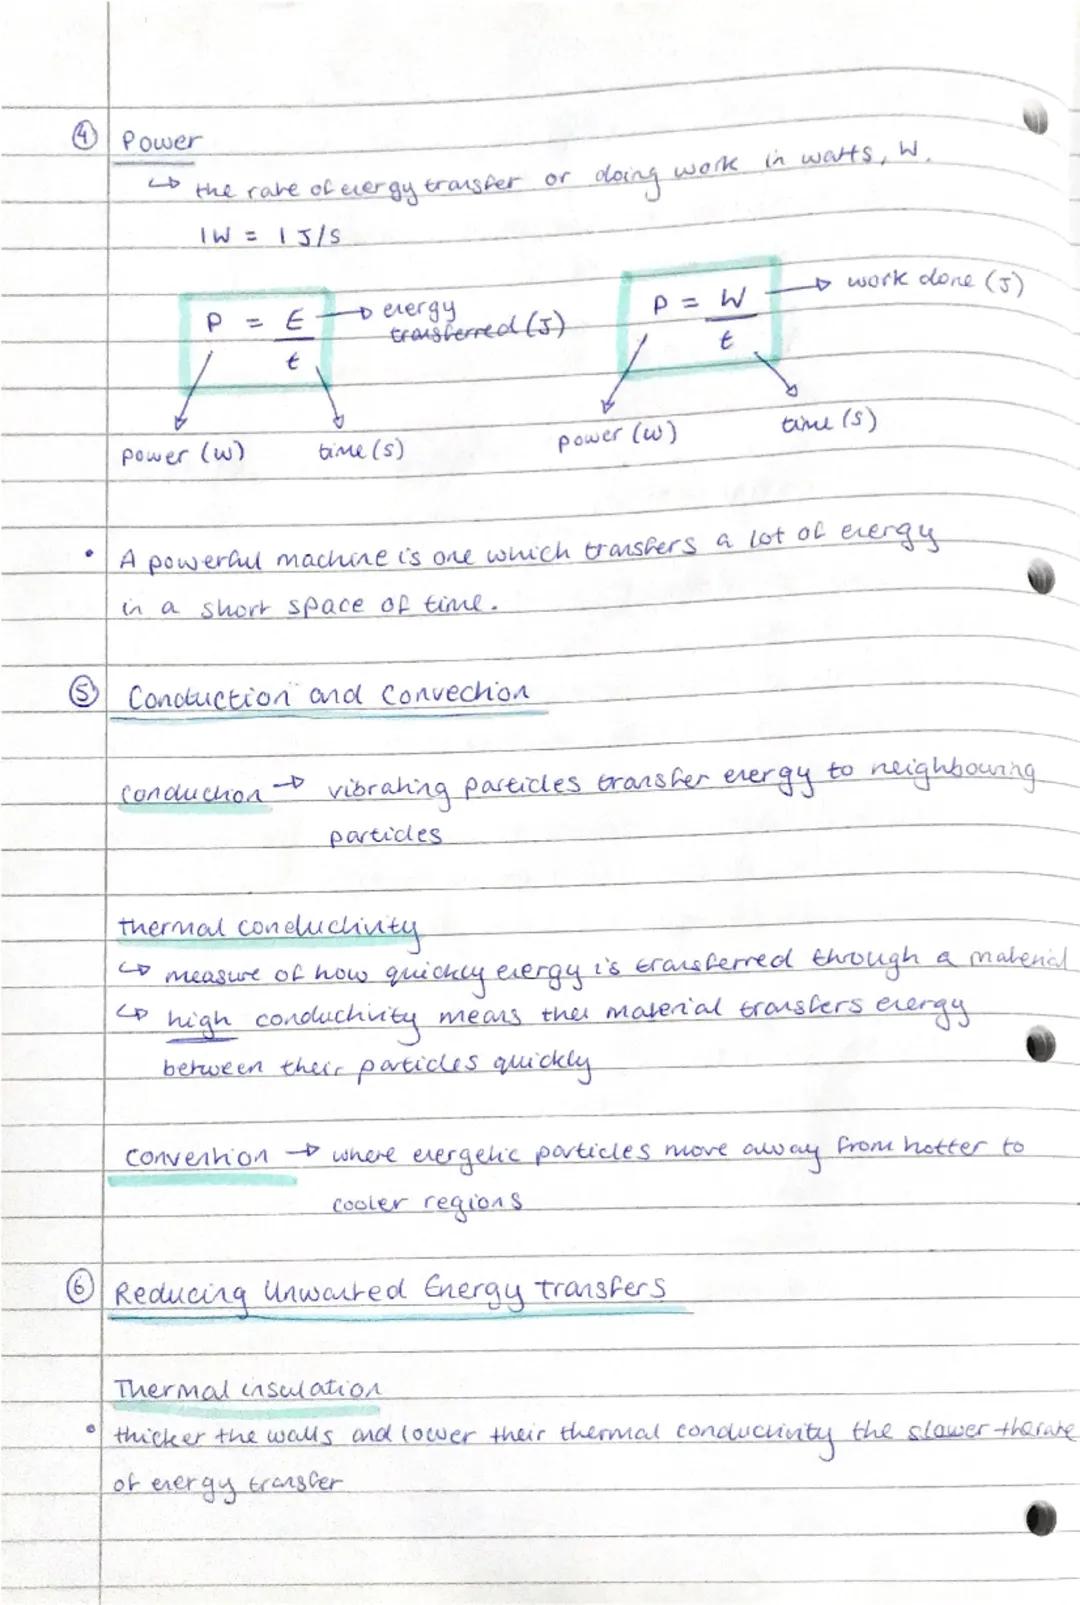 ④ Power
↳ the rate of energy transfer or doing work in watts, W.
1W = 1 J/s
P = E/t → energy transferred (J)
power (w) time (s)
P = W/t → work done (J)
power (w) time (s)
• A powerful machine is one which transfers a lot of energy
in a short space of time.
⑤ Conduction and Convection
conduction → vibrating particles transfer energy to neighbouring
particles
thermal conductivity
↳ measure of how quickly energy is transferred through a material
↳ high conductivity means the material transfers energy
between their particles quickly
Convention → where energetic particles move away from hotter to
cooler regions
⑥ Reducing Unwanted Energy transfers
Thermal insulation
• thicker the walls and lower their thermal conductivity the slower the rate
of energy transfer